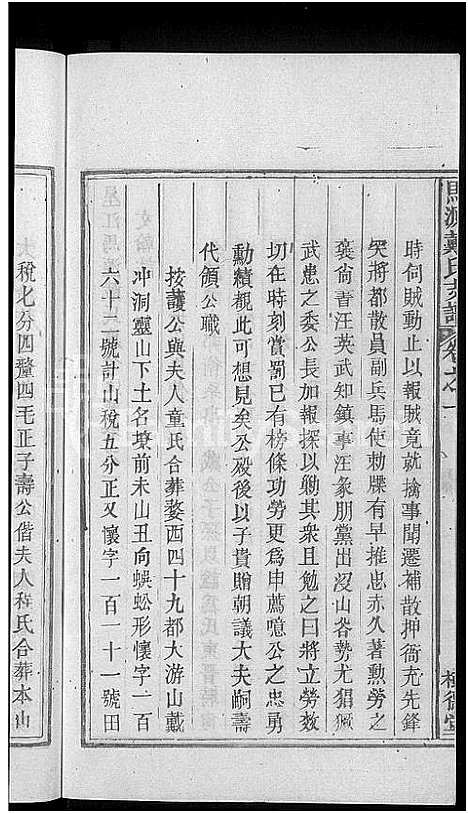 馬源戴氏支譜 卷之一
時伺賊動止以報賊竟就擒事聞遷補散押衙充先鋒
突將都散員副兵馬使勅牒有早推忠赤久著勲勞之
褒尙書汪英武知鎮事汪象朋黨出沒山谷勢尤猖獗
武患之委公長加報探以勦其衆且勉之曰將立勞效
切在時刻賞罰已有榜條功勞更爲申薦噫公之忠勇
勳績覩此可想見矣公殁後以子貴贈朝議大夫嗣壽
代領公職
按護公與夫人童氏合葬婺西四十九都大游山戴
冲洞靈山下土名塝前未山丑向蜈蚣形懷字一百
六十二號計山稅五分正又懷字一百一十一號田
稅七分四釐四毛正子壽公偕夫人程氏合葬本山